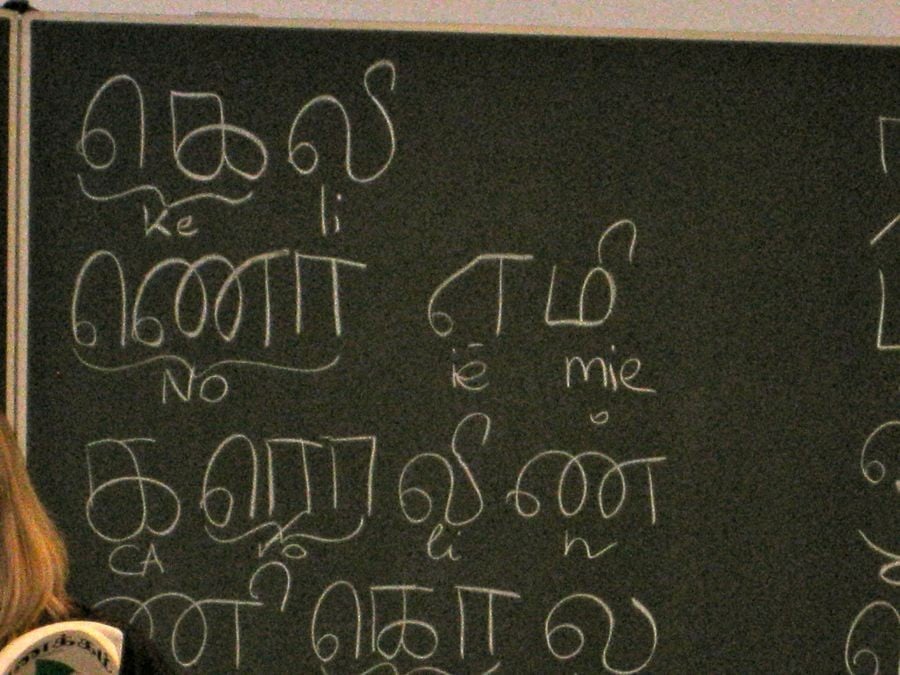 கெலி
Ke li
ணொ எமி
NO ie mie
கரொலின்
CA ro li n
னி கொல